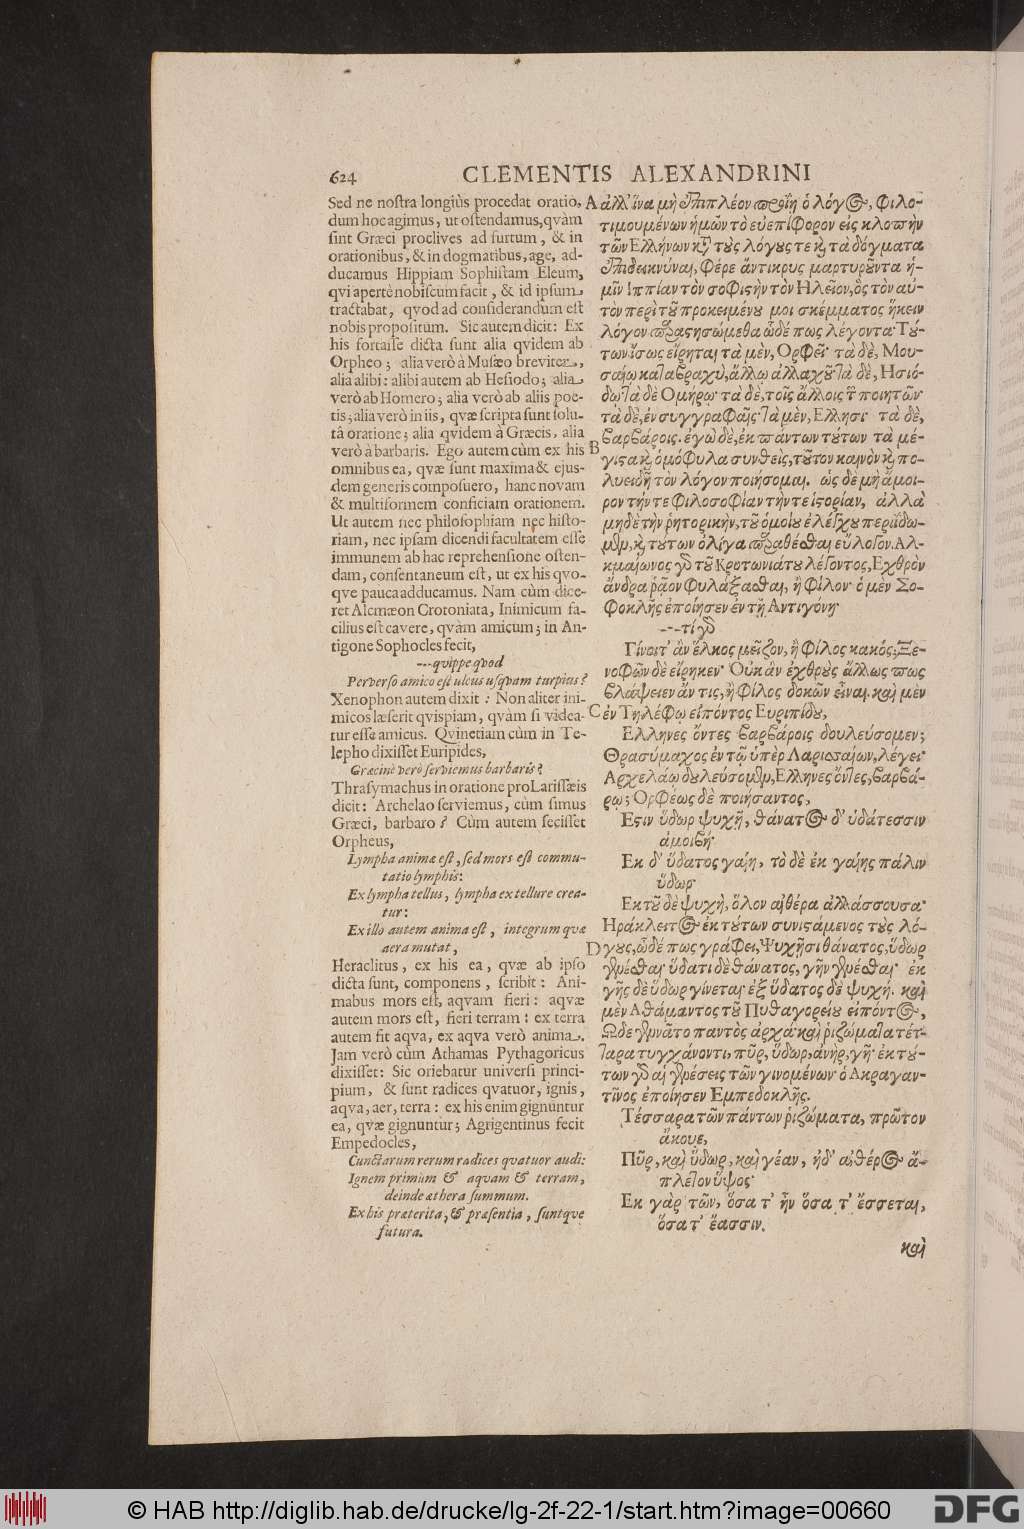 624 CLEMENTIS ALEXANDRINI
Sed ne nostra longiùs procedat oratio,
dum hoc agimus, ut ostendamus, qvàm
sint Græci proclives ad furtum, & in
orationibus, & in dogmatibus, age, ad-
ducamus Hippiam Sophistam Eleum,
qvi apertè nobiscum facit, & id ipsum
tractabat, qvod ad considerandum est
nobis propositum. Sic autem dicit: Ex
his fortasse dicta sunt alia qvidem ab
Orpheo; alia verò à Musæo breviter,
alia alibi: alibi autem ab Hesiodo; alia
verò ab Homero; alia verò ab aliis poe-
tis; alia verò in iis, qvæ scripta sunt solu-
tâ oratione; alia qvidem à Græcis, alia
verò à barbaris. Ego autem cùm ex his
omnibus ea, qvæ sunt maxima & ejus-
dem generis composuero, hanc novam
& multiformem conficiam orationem.
Ut autem nec philosophiam nec histo-
riam, nec ipsam dicendi facultatem esse
immunem ab hac reprehensione osten-
dam, consentaneum est, ut ex his qvo-
qve pauca adducamus. Nam cùm dice-
ret Alcmæon Crotoniata, Inimicum fa-
cilius est cavere, qvàm amicum; in An-
tigone Sophocles fecit,
---qvippe qvod
Perverso amico est ulcus usqvam turpius?
Xenophon autem dixit: Non aliter ini-
micos læserit qvispiam, qvàm si videa-
tur esse amicus. Qvinetiam cùm in Te-
lepho dixisset Euripides,
Græcinè verò serviemus barbaris?
Thrasymachus in oratione pro Larissæis
dicit: Archelao serviemus, cùm simus
Græci, barbaro? Cùm autem fecisset
Orpheus,
Lympha animæ est, sed mors est commu-
tatio lymphis:
Ex lympha tellus, lympha ex tellure crea-
tur:
Ex illo autem anima est, integrum qvæ
aera mutat,
Heraclitus, ex his ea, qvæ ab ipso
dicta sunt, componens, scribit: Ani-
mabus mors est, aqvam fieri: aqvæ
autem mors est, fieri terram: ex terra
autem fit aqva, ex aqva verò anima.
Jam verò cùm Athamas Pythagoricus
dixisset: Sic oriebatur universi princi-
pium, & sunt radices qvatuor, ignis,
aqva, aer, terra: ex his enim gignuntur
ea, qvæ gignuntur; Agrigentinus fecit
Empedocles,
Cunctarum rerum radices qvatuor audi:
Ignem primùm & aqvam & terram,
deinde æthera summum.
Ex his præterita, & præsentia, suntqve
futura.
A ἀλλ' ἵνα μὴ ἐπιπλέον προΐῃ ὁ λόγος, φιλο-
τιμουμένων ἡμῶν τὸ εὐεπίφορον εἰς κλοπὴν
τῶν Ελλήνων κατὰ τοὺς λόγους τε καὶ τὰ δόγματα
ἐπιδεικνύναι, φέρε ἄντικρυς μαρτυροῦντα ἡ-
μῖν Ιππίαν τὸν σοφιστὴν τὸν Ηλεῖον, ὃς τὸν αὐ-
τὸν περὶ τοῦ προκειμένου μοι σκέμματος ἥκειν
λόγον παραστησώμεθα ὧδέ πως λέγοντα· Τού-
των ἴσως εἴρηται τὰ μὲν, Ορφεῖ· τὰ δὲ, Μου-
σαίῳ κατὰ βραχὺ, ἄλλῳ ἀλλαχοῦ· τὰ δὲ, Ησιό-
δῳ· τὰ δὲ Ομήρῳ· τὰ δὲ, τοῖς ἄλλοις τῶν ποιητῶν·
τὰ δὲ, ἐν συγγραφαῖς· τὰ μὲν, Ελλησι· τὰ δὲ,
βαρβάροις. ἐγὼ δὲ, ἐκ πάντων τούτων τὰ μέ-
B γιστα καὶ ὁμόφυλα συνθεὶς, τοῦτον καινὸν καὶ πο-
λυειδῆ τὸν λόγον ποιήσομαι. ὡς δὲ μὴ ἄμοι-
ρον τήν τε φιλοσοφίαν τήν τε ἱστορίαν, ἀλλὰ
μηδὲ τὴν ῥητορικὴν, τοῦ ὁμοίου ἐλέγχου περιΐδω-
μεν, καὶ τούτων ὀλίγα παραθέσθαι εὔλογον. Αλ-
κμαίωνος γὰρ τοῦ Κροτωνιάτου λέγοντος, Εχθρὸν
ἄνδρα ῥᾷον φυλάξασθαι, ἢ φίλον· ὁ μὲν Σο-
φοκλῆς ἐποίησεν ἐν τῇ Αντιγόνῃ·
---τί γὰρ
Γίνοιτ' ἂν ἕλκος μεῖζον, ἢ φίλος κακός; Ξε-
νοφῶν δὲ εἴρηκεν· Οὐκ ἀν ἐχθροὺς ἄλλως πως
βλάψειεν ἄν τις, ἢ φίλος δοκῶν εἶναι. καὶ μὲν
C ἐν Τηλέφῳ εἰπόντος Ευριπίδου,
Ελληνες ὄντες βαρβάροις δουλεύσομεν;
Θρασύμαχος ἐν τῷ ὑπὲρ Λαρισσαίων, λέγει·
Αρχελάῳ δουλεύσομεν, Ελληνες ὄντες, βαρβά-
ρῳ; Ορφέως δὲ ποιήσαντος,
Εστιν ὕδωρ ψυχῇ, θάνατος δ' ὑδάτεσσιν
ἀμοιβή·
Εκ δ' ὕδατος γαίη, τὸ δὲ ἐκ γαίης πάλιν
ὕδωρ·
Εκ τοῦ δὲ ψυχὴ, ὅλον αἰθέρα ἀλλάσσουσα·
Ηράκλειτος ἐκ τούτων συνιστάμενος τοὺς λό-
D γους, ὧδέ πως γράφει, Ψυχῇσι θάνατος, ὕδωρ
γενέσθαι· ὕδατι δὲ θάνατος, γῆν γενέσθαι· ἐκ
γῆς δὲ ὕδωρ γίνεται· ἐξ ὕδατος δὲ ψυχή. καὶ
μὲν Αθάμαντος τοῦ Πυθαγορείου εἰπόντος,
Ωδε γεννᾶτο παντὸς ἀρχά· καὶ ῥιζώματα τέτ-
ταρα τυγχάνοντι, πῦρ, ὕδωρ, ἀὴρ, γῆ· ἐκ τού-
των γὰρ αἱ γενέσεις τῶν γινομένων· ὁ Ακραγαν-
τῖνος ἐποίησεν Εμπεδοκλῆς.
Τέσσαρα τῶν πάντων ῥιζώματα, πρῶτον
ἄκουε,
Πῦρ, καὶ ὕδωρ, καὶ γέαν, ἠδ' αἰθέρος ἄ-
πλετον ὕψος·
Εκ γὰρ τῶν, ὅσα τ' ἦν ὅσα τ' ἔσσεται,
ὅσα τ' ἔασσιν.
καὶ
© HAB http://diglib.hab.de/drucke/lg-2f-22-1/start.htm?image=00660
DFG